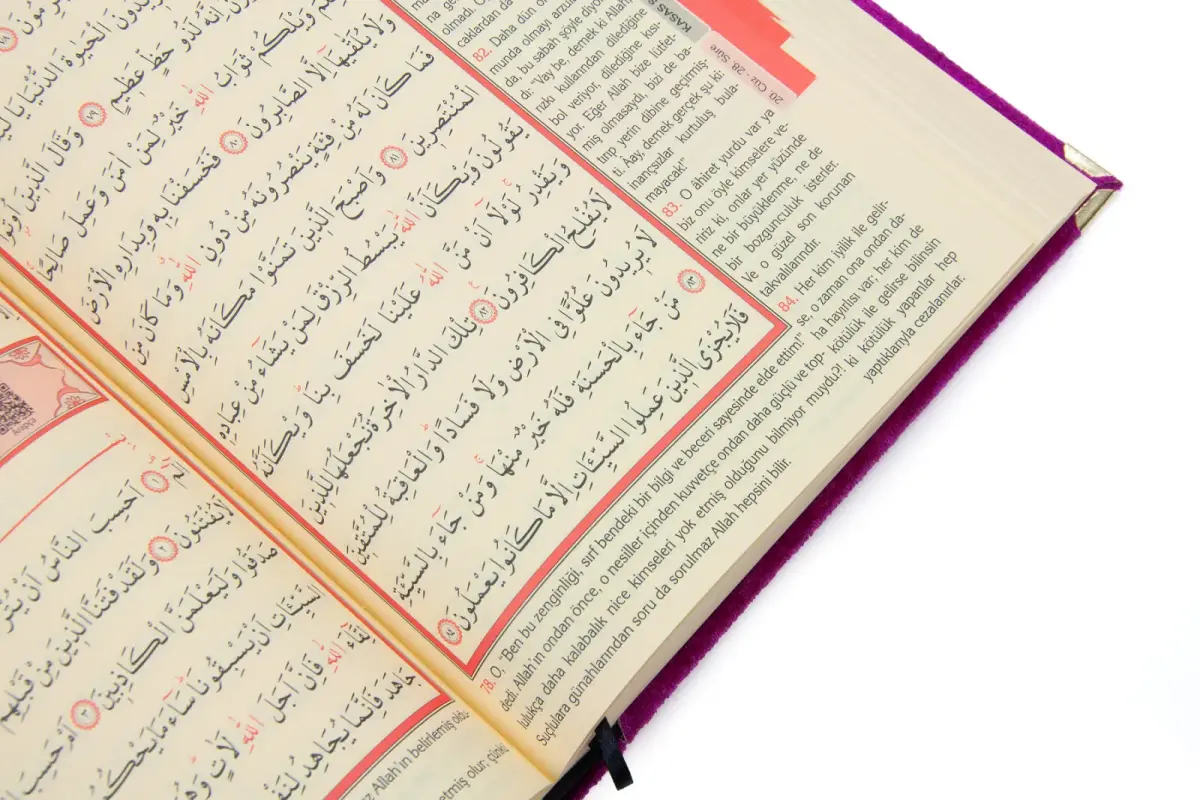 وَلَا يُلَقَّيهَا إِلَّا الصَّابِرُونَ ٨٠ فَخَسَفْنَا بِهِ وَبِدَارِهِ الْأَرْضَ
فَمَا كَانَ لَهُ مِنْ فِئَةٍ يَنْصُرُونَهُ مِنْ دُونِ اللّٰهِ وَمَا كَانَ مِنَ
الْمُنْتَصِرِينَ ٨١ وَأَصْبَحَ الَّذِينَ تَمَنَّوْا مَكَانَهُ بِالْأَمْسِ
يَقُولُونَ وَيْكَأَنَّ اللّٰهَ يَبْسُطُ الرِّزْقَ لِمَنْ يَشَاءُ مِنْ عِبَادِهِ
وَيَقْدِرُ لَوْلَا أَنْ مَنَّ اللّٰهُ عَلَيْنَا لَخَسَفَ بِنَا وَيْكَأَنَّهُ
لَا يُفْلِحُ الْكَافِرُونَ ٨٢ تِلْكَ الدَّارُ الْآخِرَةُ نَجْعَلُهَا لِلَّذِينَ
لَا يُرِيدُونَ عُلُوًّا فِي الْأَرْضِ وَلَا فَسَادًا وَالْعَاقِبَةُ لِلْمُتَّقِينَ
٨٣ مَنْ جَاءَ بِالْحَسَنَةِ فَلَهُ خَيْرٌ مِنْهَا وَمَنْ جَاءَ بِالسَّيِّئَةِ
فَلَا يُجْزَى الَّذِينَ عَمِلُوا السَّيِّئَاتِ إِلَّا مَا كَانُوا يَعْمَلُونَ ٨٤
KASAS
20. Cüz - 28. Sûre
82. Daha dün o
munda olmayı arzula
da, bu sabah şöyle diyo
dı: "Vay be, demek ki Allah
rızkı kullarından dilediğine
bol veriyor, dilediğine kısı-
yor. Eğer Allah bize lütfet-
miş olmasaydı, bizi de ba-
tırıp yerin dibine geçirmiş-
ti. Aay, demek gerçek şu ki:
inançsızlar kurtuluş bula-
mayacak!"
83. O âhiret yurdu var ya
biz onu öyle kimselere ve-
ririz ki, onlar yer yüzünde
ne bir büyüklenme, ne de
bir bozgunculuk isterler.
Ve o güzel son korunan
takvalılarındır.
84. Her kim iyilik ile gelir-
se, o zaman ona ondan da-
ha hayırlısı var; her kim de
kötülük ile gelirse bilinsin
ki kötülük yapanlar hep
yaptıklarıyla cezalanırlar.
78. O, "Ben bu zenginliği, sırf bendeki bir bilgi ve beceri sayesinde elde ettim!"
dedi. Allah'ın ondan önce, o nesiller içinden kuvvetçe ondan daha güçlü ve top-
lulukça daha kalabalık nice kimseleri yok etmiş olduğunu bilmiyor muydu?!
Suçlulara günahlarından soru da sorulmaz Allah hepsini bilir.
الم ١ أَحَسِبَ النَّاسُ أَنْ
لَا يُفْتَنُونَ ٢ وَلَقَدْ فَتَنَّا الَّذِينَ مِنْ قَبْلِهِمْ
صَدَقُوا وَلَيَعْلَمَنَّ الْكَاذِبِينَ ٣ أَمْ حَسِبَ
السَّيِّئَاتِ أَنْ يَسْبِقُونَا سَاءَ مَا يَحْكُمُونَ
لِقَاءَ اللّٰهِ فَإِنَّ أَجَلَ اللّٰهِ لَآتٍ وَهُوَ
جَاهَدَ فَإِنَّمَا يُجَاهِدُ
Allah'ın belirlemiş
etmiş olur;